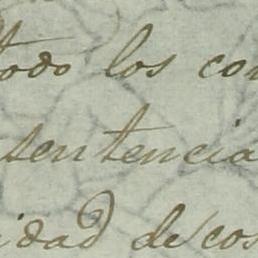 todo los con
sentencia
idad de cos